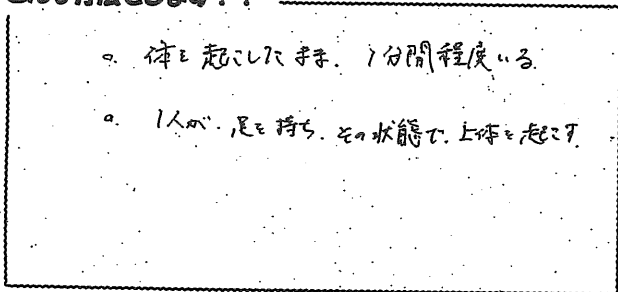 o. 体を起こしたまま、1分間程度いる.
o. 1人が、足を持ち、その状態で、上体を起こす